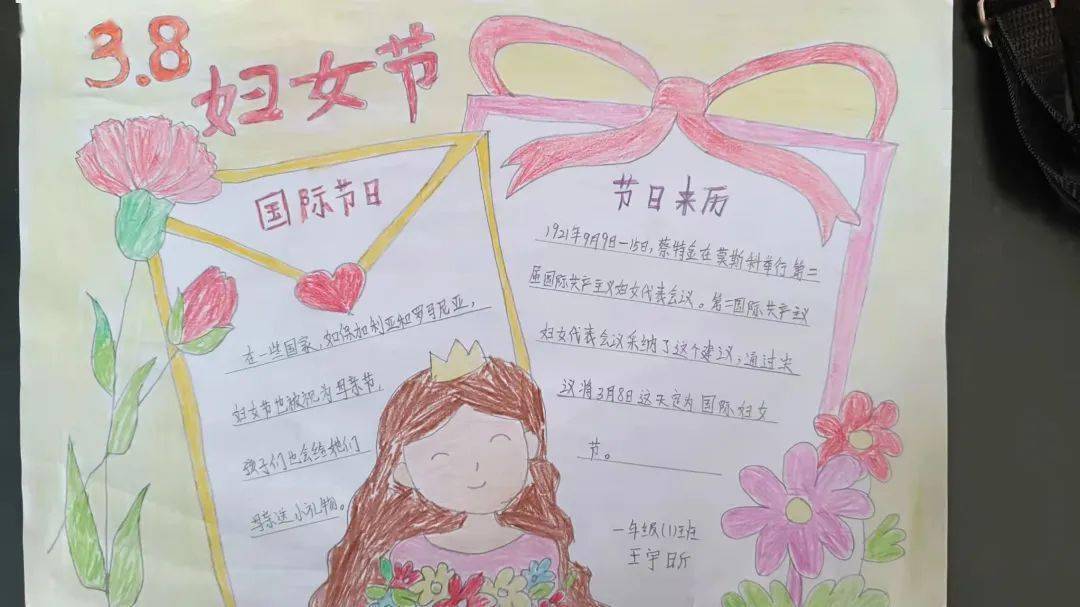 3.8
妇女节
国际节日
在一些国家,如保加利亚和罗马尼亚,
妇女节也被视为母亲节,
孩子们也会给她们
母亲送小礼物。
节日来历
1921年9月9日—15日,蔡特金在莫斯科举行第二
届国际共产主义妇女代表会议。第二国际共产主义
妇女代表会议采纳了这个建议,通过决
议将3月8日这天定为国际妇女
节。
一年级(1)班
王宇昕